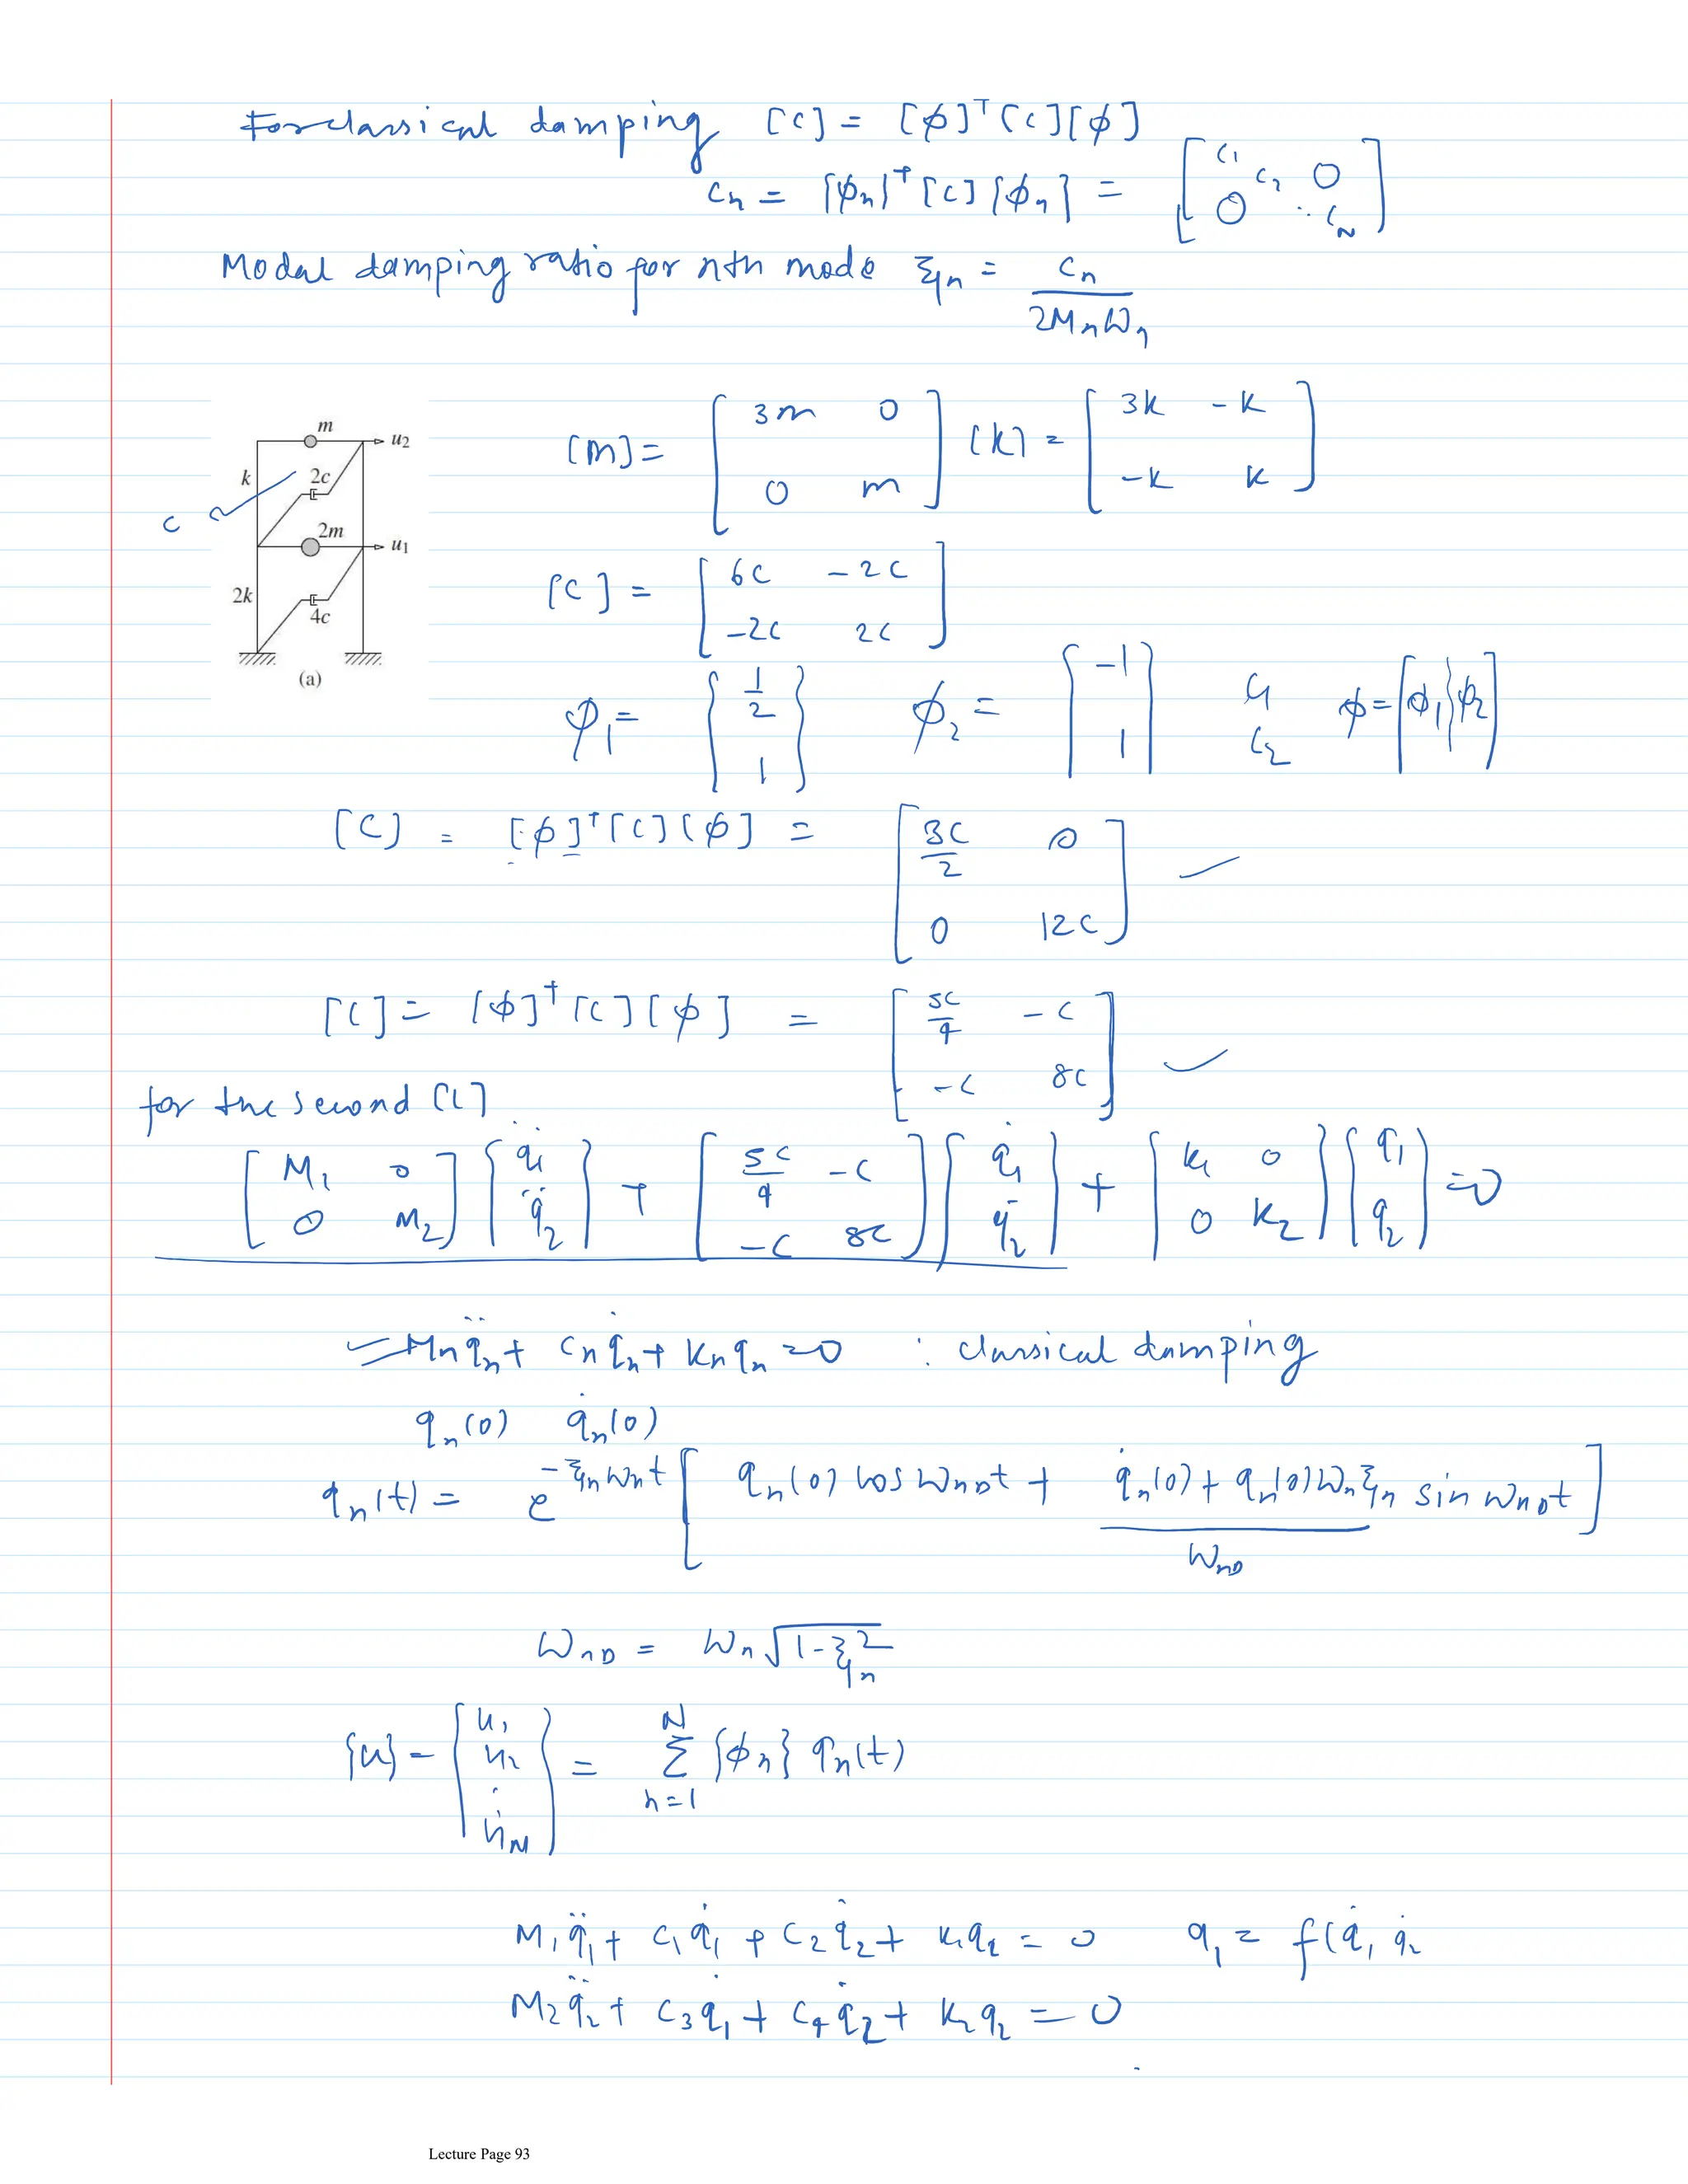 For classical damping [C] = [φ]ᵀ[c][φ]
Cn = {φn}ᵀ[c]{φn} = [C1 C2 0 0 ⋱ CN]
Modal damping ratio for nth mode ξn = Cn / 2MnWn
[m] = [3m 0 0 m] [k] = [3k -k -k k]
m
u2
k
2c
c
2m
u1
2k
4c
(a)
[c] = [6c -2c -2c 2c]
φ1 = {1/2 1} φ2 = {-1 1} C1 C2 φ = [φ1 φ2]
[C] = [φ]ᵀ[c][φ] = [3c/2 0 0 12c]
[C] = [φ]ᵀ[c][φ] = [5c/4 -c -c 8c]
for the second [c]
[M1 0 0 M2]{q̈1 q̈2} + [5c/4 -c -c 8c]{q̇1 q̇2} + [k1 0 0 k2]{q1 q2} = 0
Mn q̈n + Cn q̇n + Kn qn = 0 : classical damping
qn(0) q̇n(0)
qn(t) = e^(-ξnWnt) [qn(0) cos WnDt + (q̇n(0) + qn(0)Wnξn) / WnD sin WnDt]
WnD = Wn√(1-ξn²)
{u} = {u1 u2 . uN} = Σ n=1 N {φn} qn(t)
M1q̈1 + C1q̇1 + C2q̇2 + K1q1 = 0 q1 = f(q̇1 q̇2
M2q̈2 + C3q̇1 + C4q̇2 + K2q2 = 0
Lecture Page 93